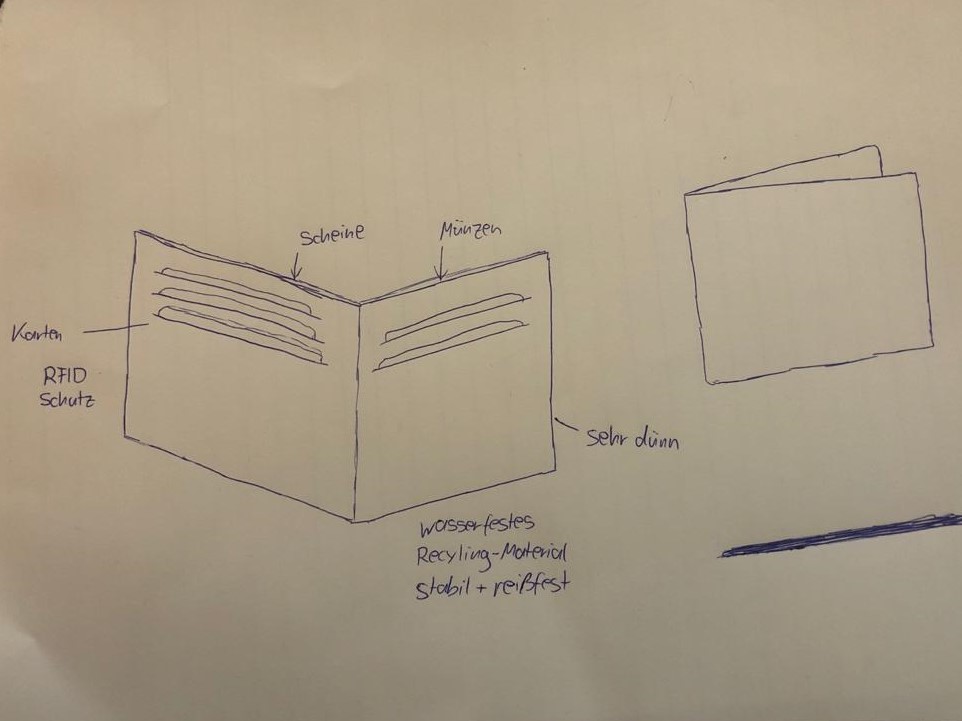 Scheine
Münzen
Karten
RFID
Schutz
sehr dünn
wasserfestes
Recyling-Material
stabil + reißfest